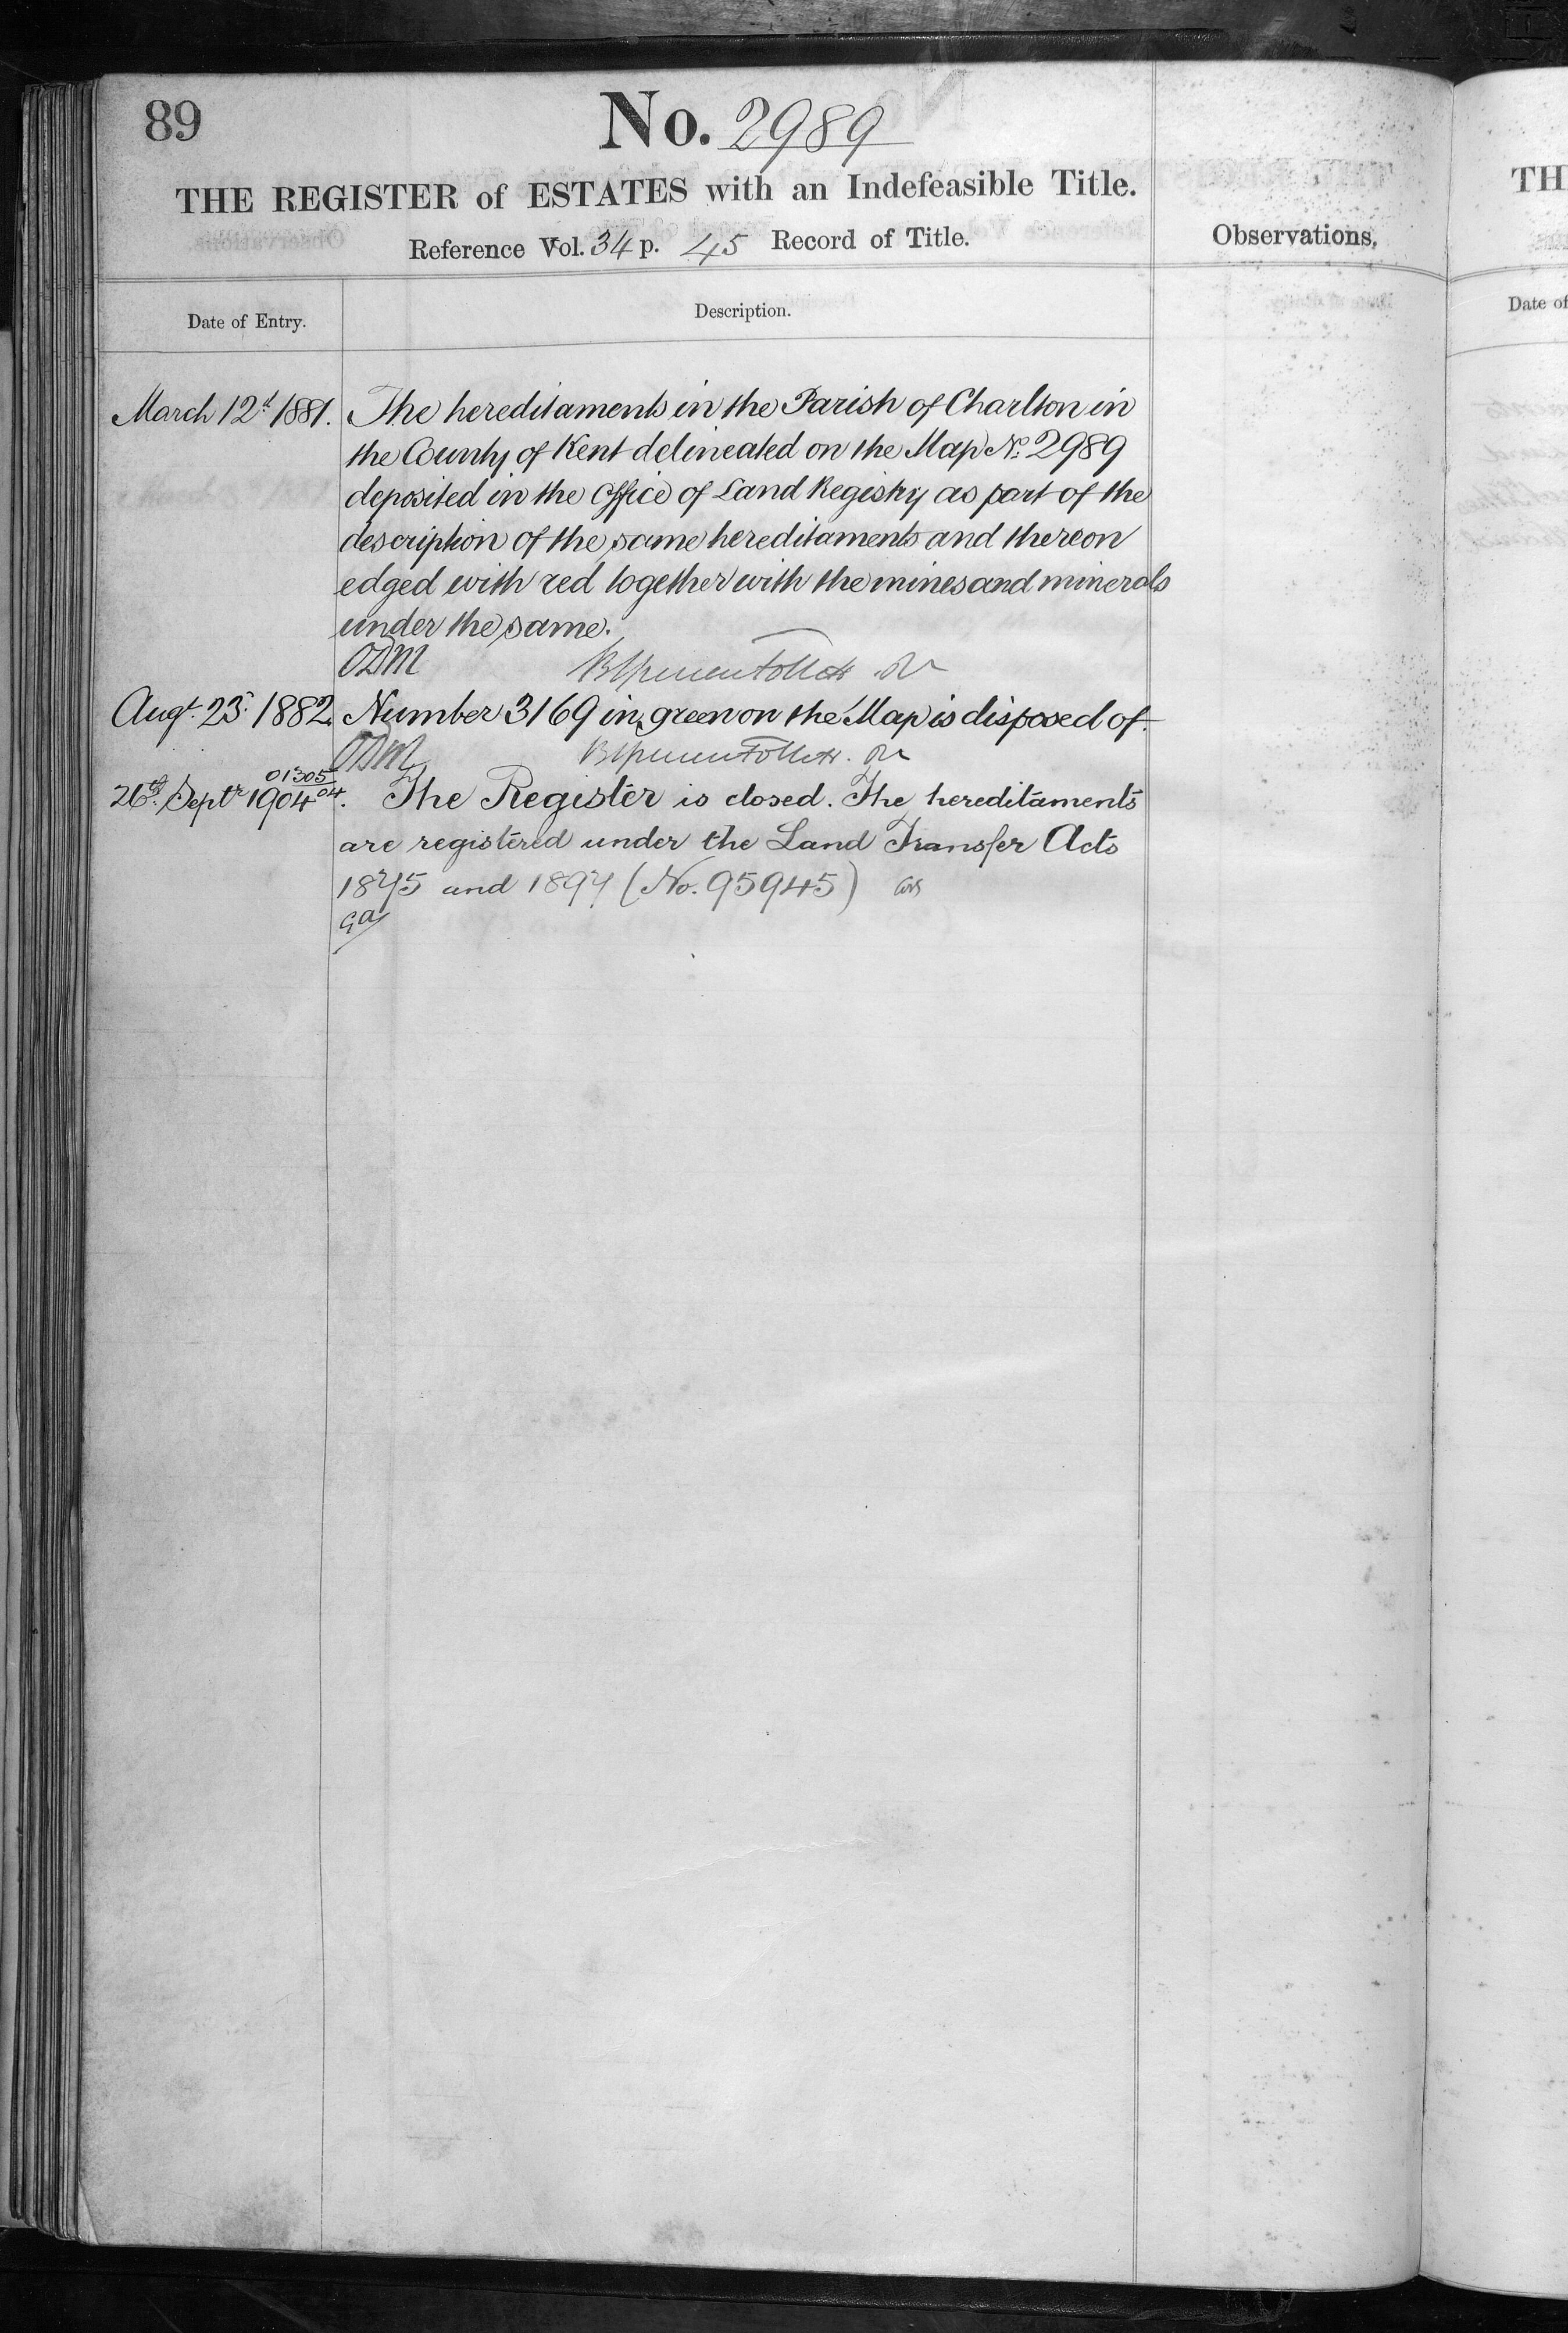 89
No. 2989
THE REGISTER of ESTATES with an Indefeasible Title.
Reference Vol. 34 p. 45 Record of Title.
Observations,
Date of Entry.
Description.
March 12th 1881. The hereditaments in the Parish of Charlton in
the County of Kent delineated on the Map No. 2989
deposited in the Office of Land Registry as part of the
description of the same hereditaments and thereon
edged with red together with the mines and minerals
under the same.
ODM
Augt. 23. 1882. Number 3169 in green on the Map is disposed of.
ODM
01305
04
26th Septr 1904. The Register is closed. The hereditaments
are registered under the Land Transfer Acts
1875 and 1897 (No. 95945)
TH
Date of